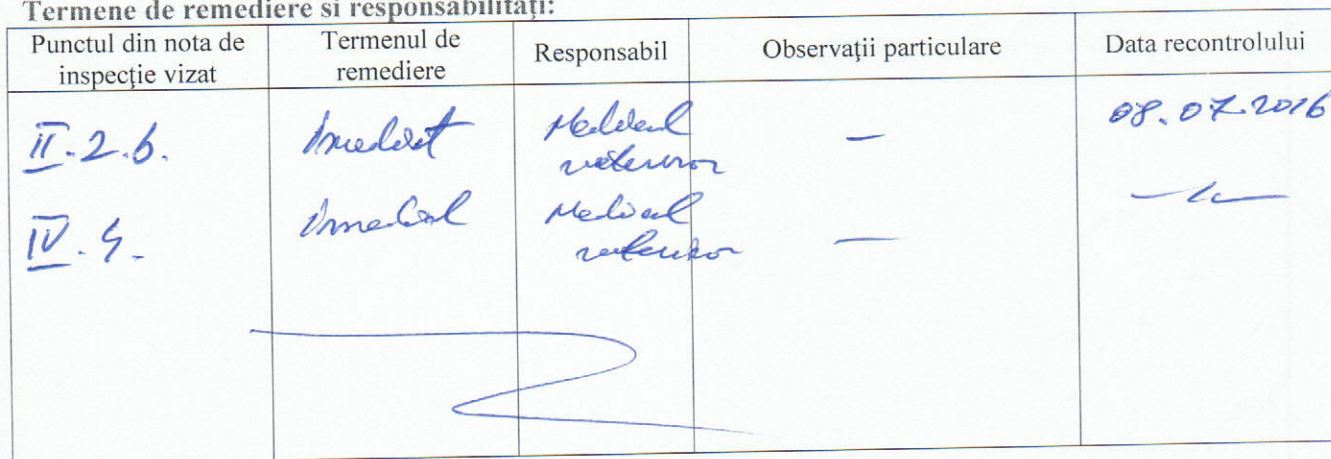 Termene de remediere si responsabilităţi:
Punctul din nota de inspecţie vizat
Termenul de remediere
Responsabil
Observaţii particulare
Data recontrolului
II.2.b.
Imediat
Medicul
veterinar
—
08.07.2016
IV.4.
Imediat
Medicul
veterinar
—
—"—